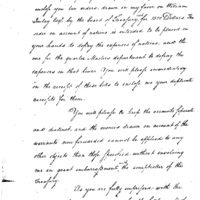 enclose you two orders drawn in my favor on William
by the board of Treasury for 1000 Dollars. The
order on account of rations is intended to be placed in
your hands to defray the expences of rations, and the
one for the quarter Masters department to defray the
expences in that line. You will please immediately
on the receipt of these bills to enclose me your duplicate
receipts for them.
You will please to keep the accounts separate
and distinct, and the monies drawn on account of the
warrants now forwarded cannot be applied to any
other objects than those specified without involving
me in great embarrassments with the comptroller of the
Treasury.
As you are fully empowered with the